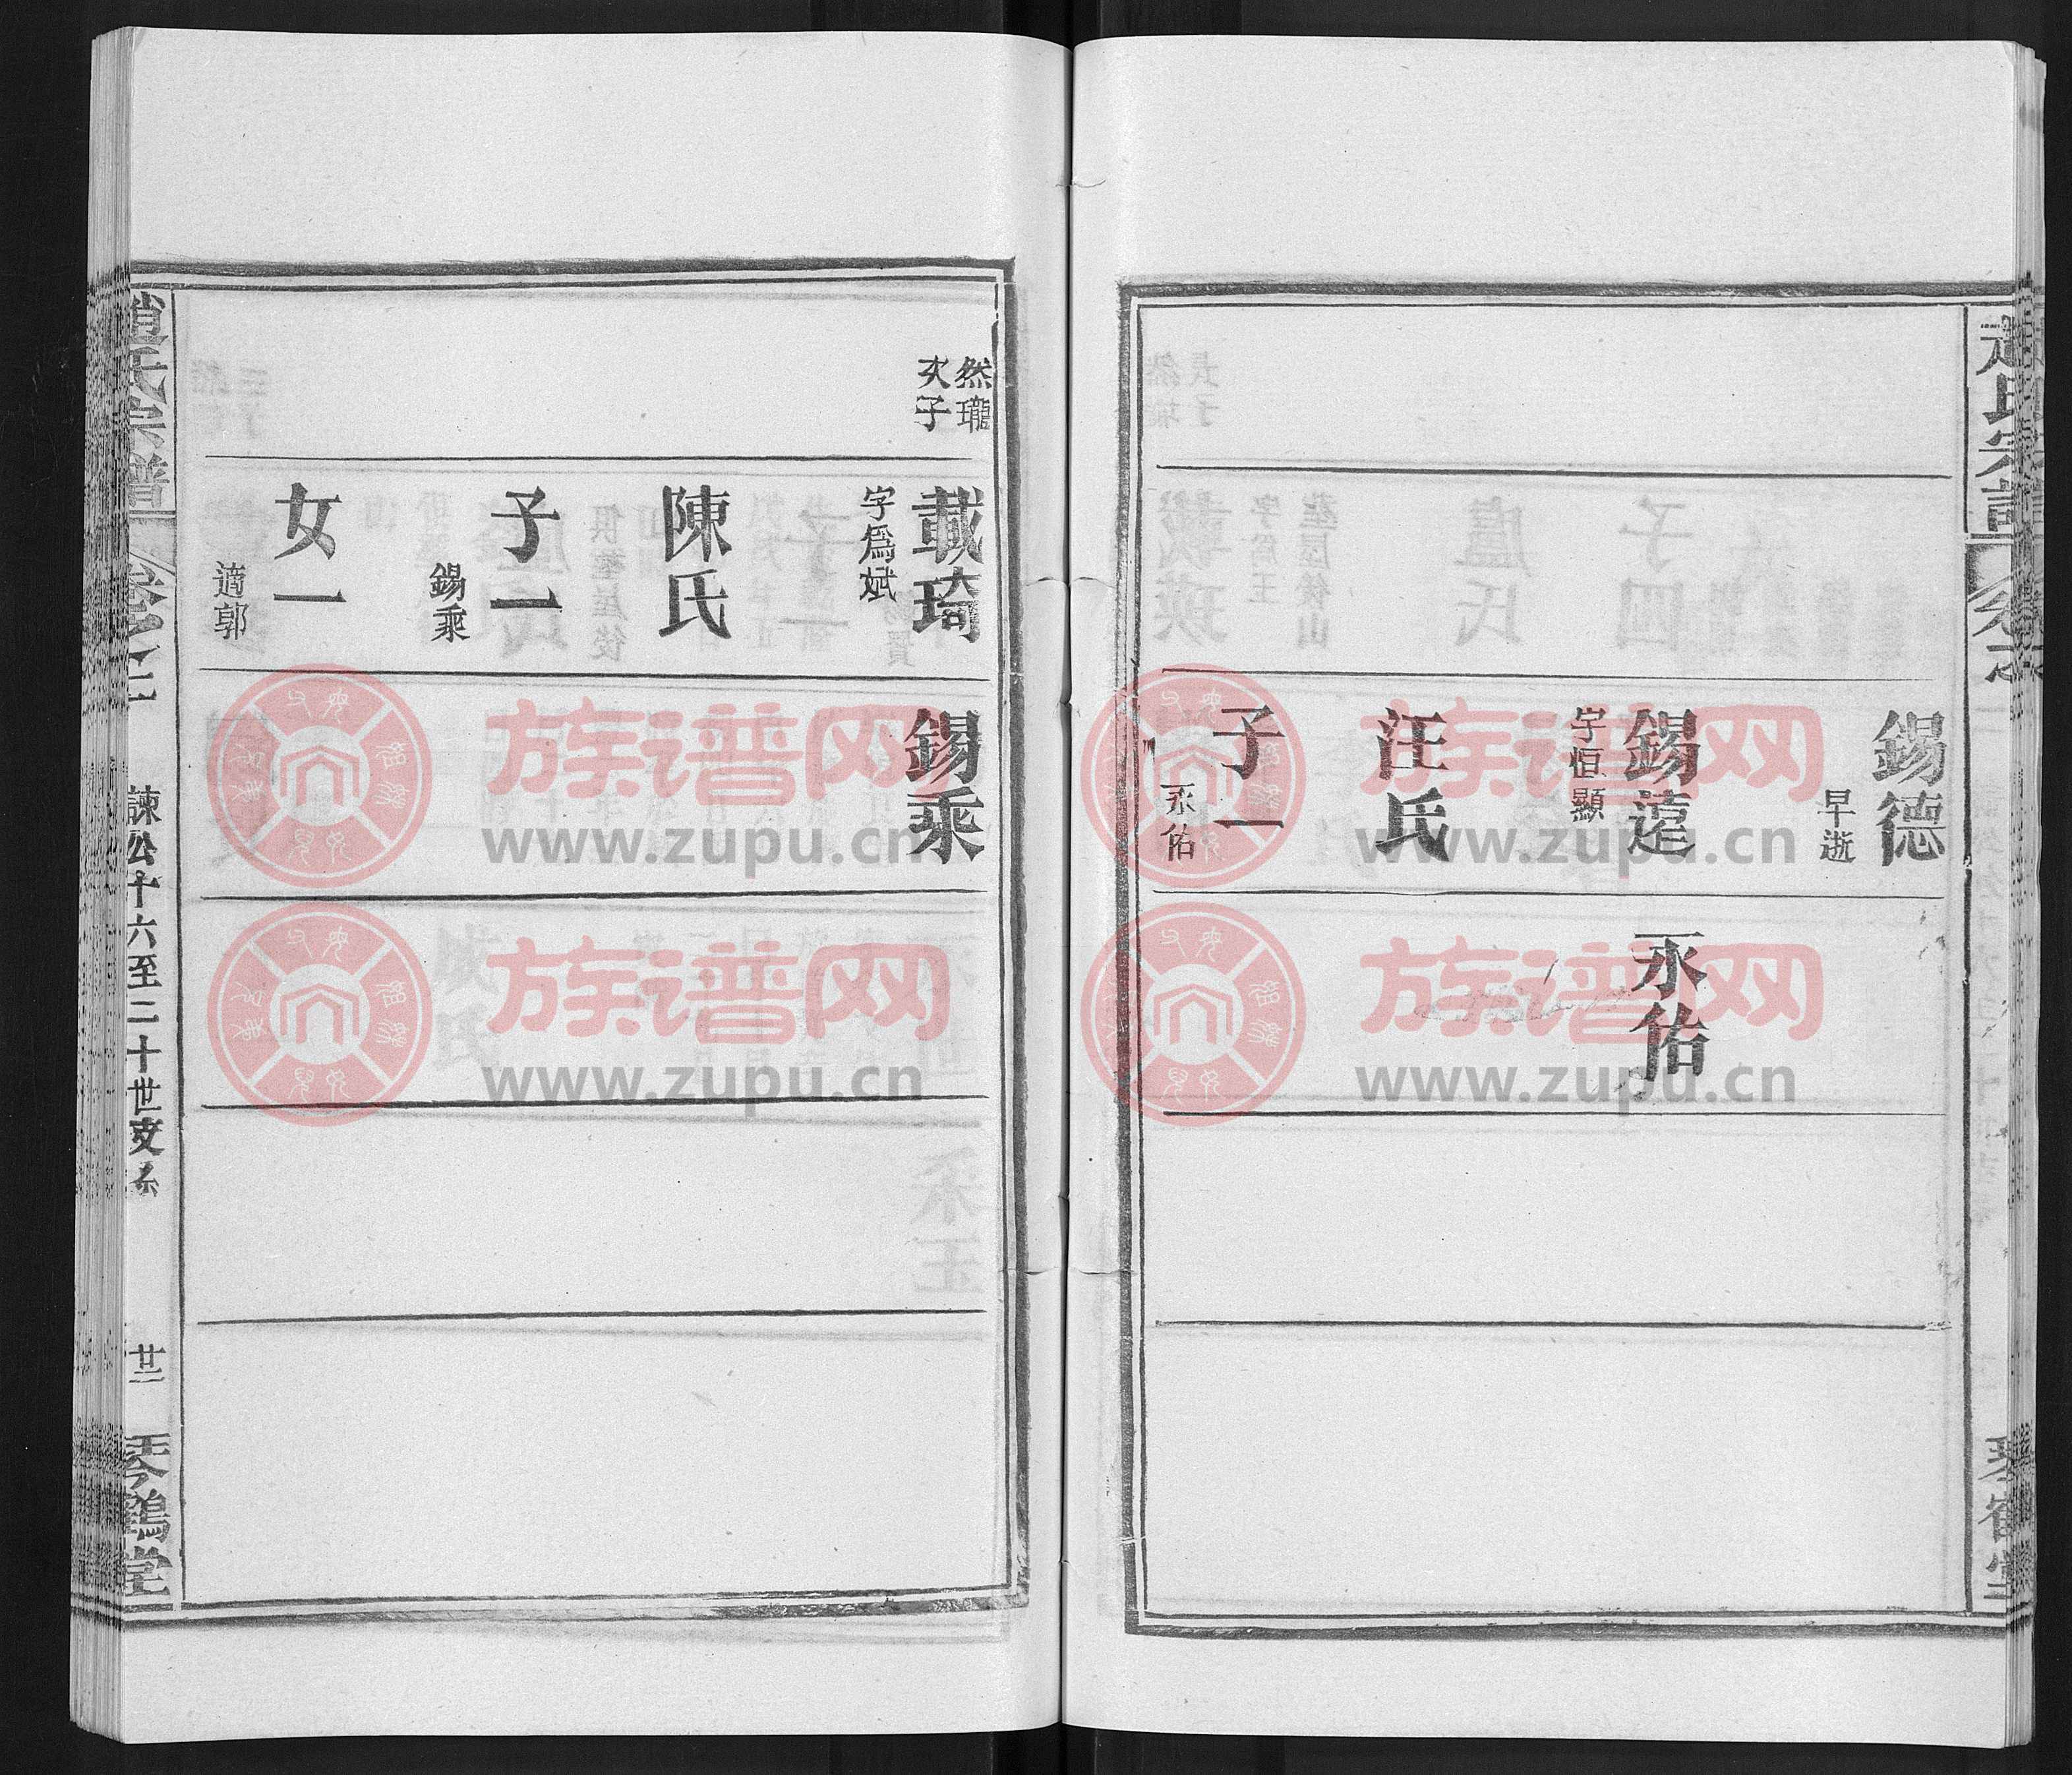 趙氏宗譜
琴鶴堂
錫德
早逝
錫薳
字恒顯
汪氏
子一
永佑
永佑
然瓏
次子
載琦
字爲斌
陳氏
子一
錫乘
女一
適郭
錫乘
趙氏宗譜
諫公十六至二十世支系
廿二
琴鶴堂
族谱网
www.zupu.cn
族谱网
www.zupu.cn
族谱网
www.zupu.cn
族谱网
www.zupu.cn